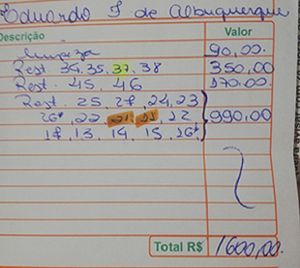 Eduardo J de Albuquerque
Descrição Valor
Limpeza 90,00
Rest 34, 35, 37, 38 350,00
Rest. 45, 46 170,00
Rest. 25, 27, 24, 23
26*, 22, 21, 11, 12 990,00
17, 13, 14, 15, 16*
Total R$ 1600,00